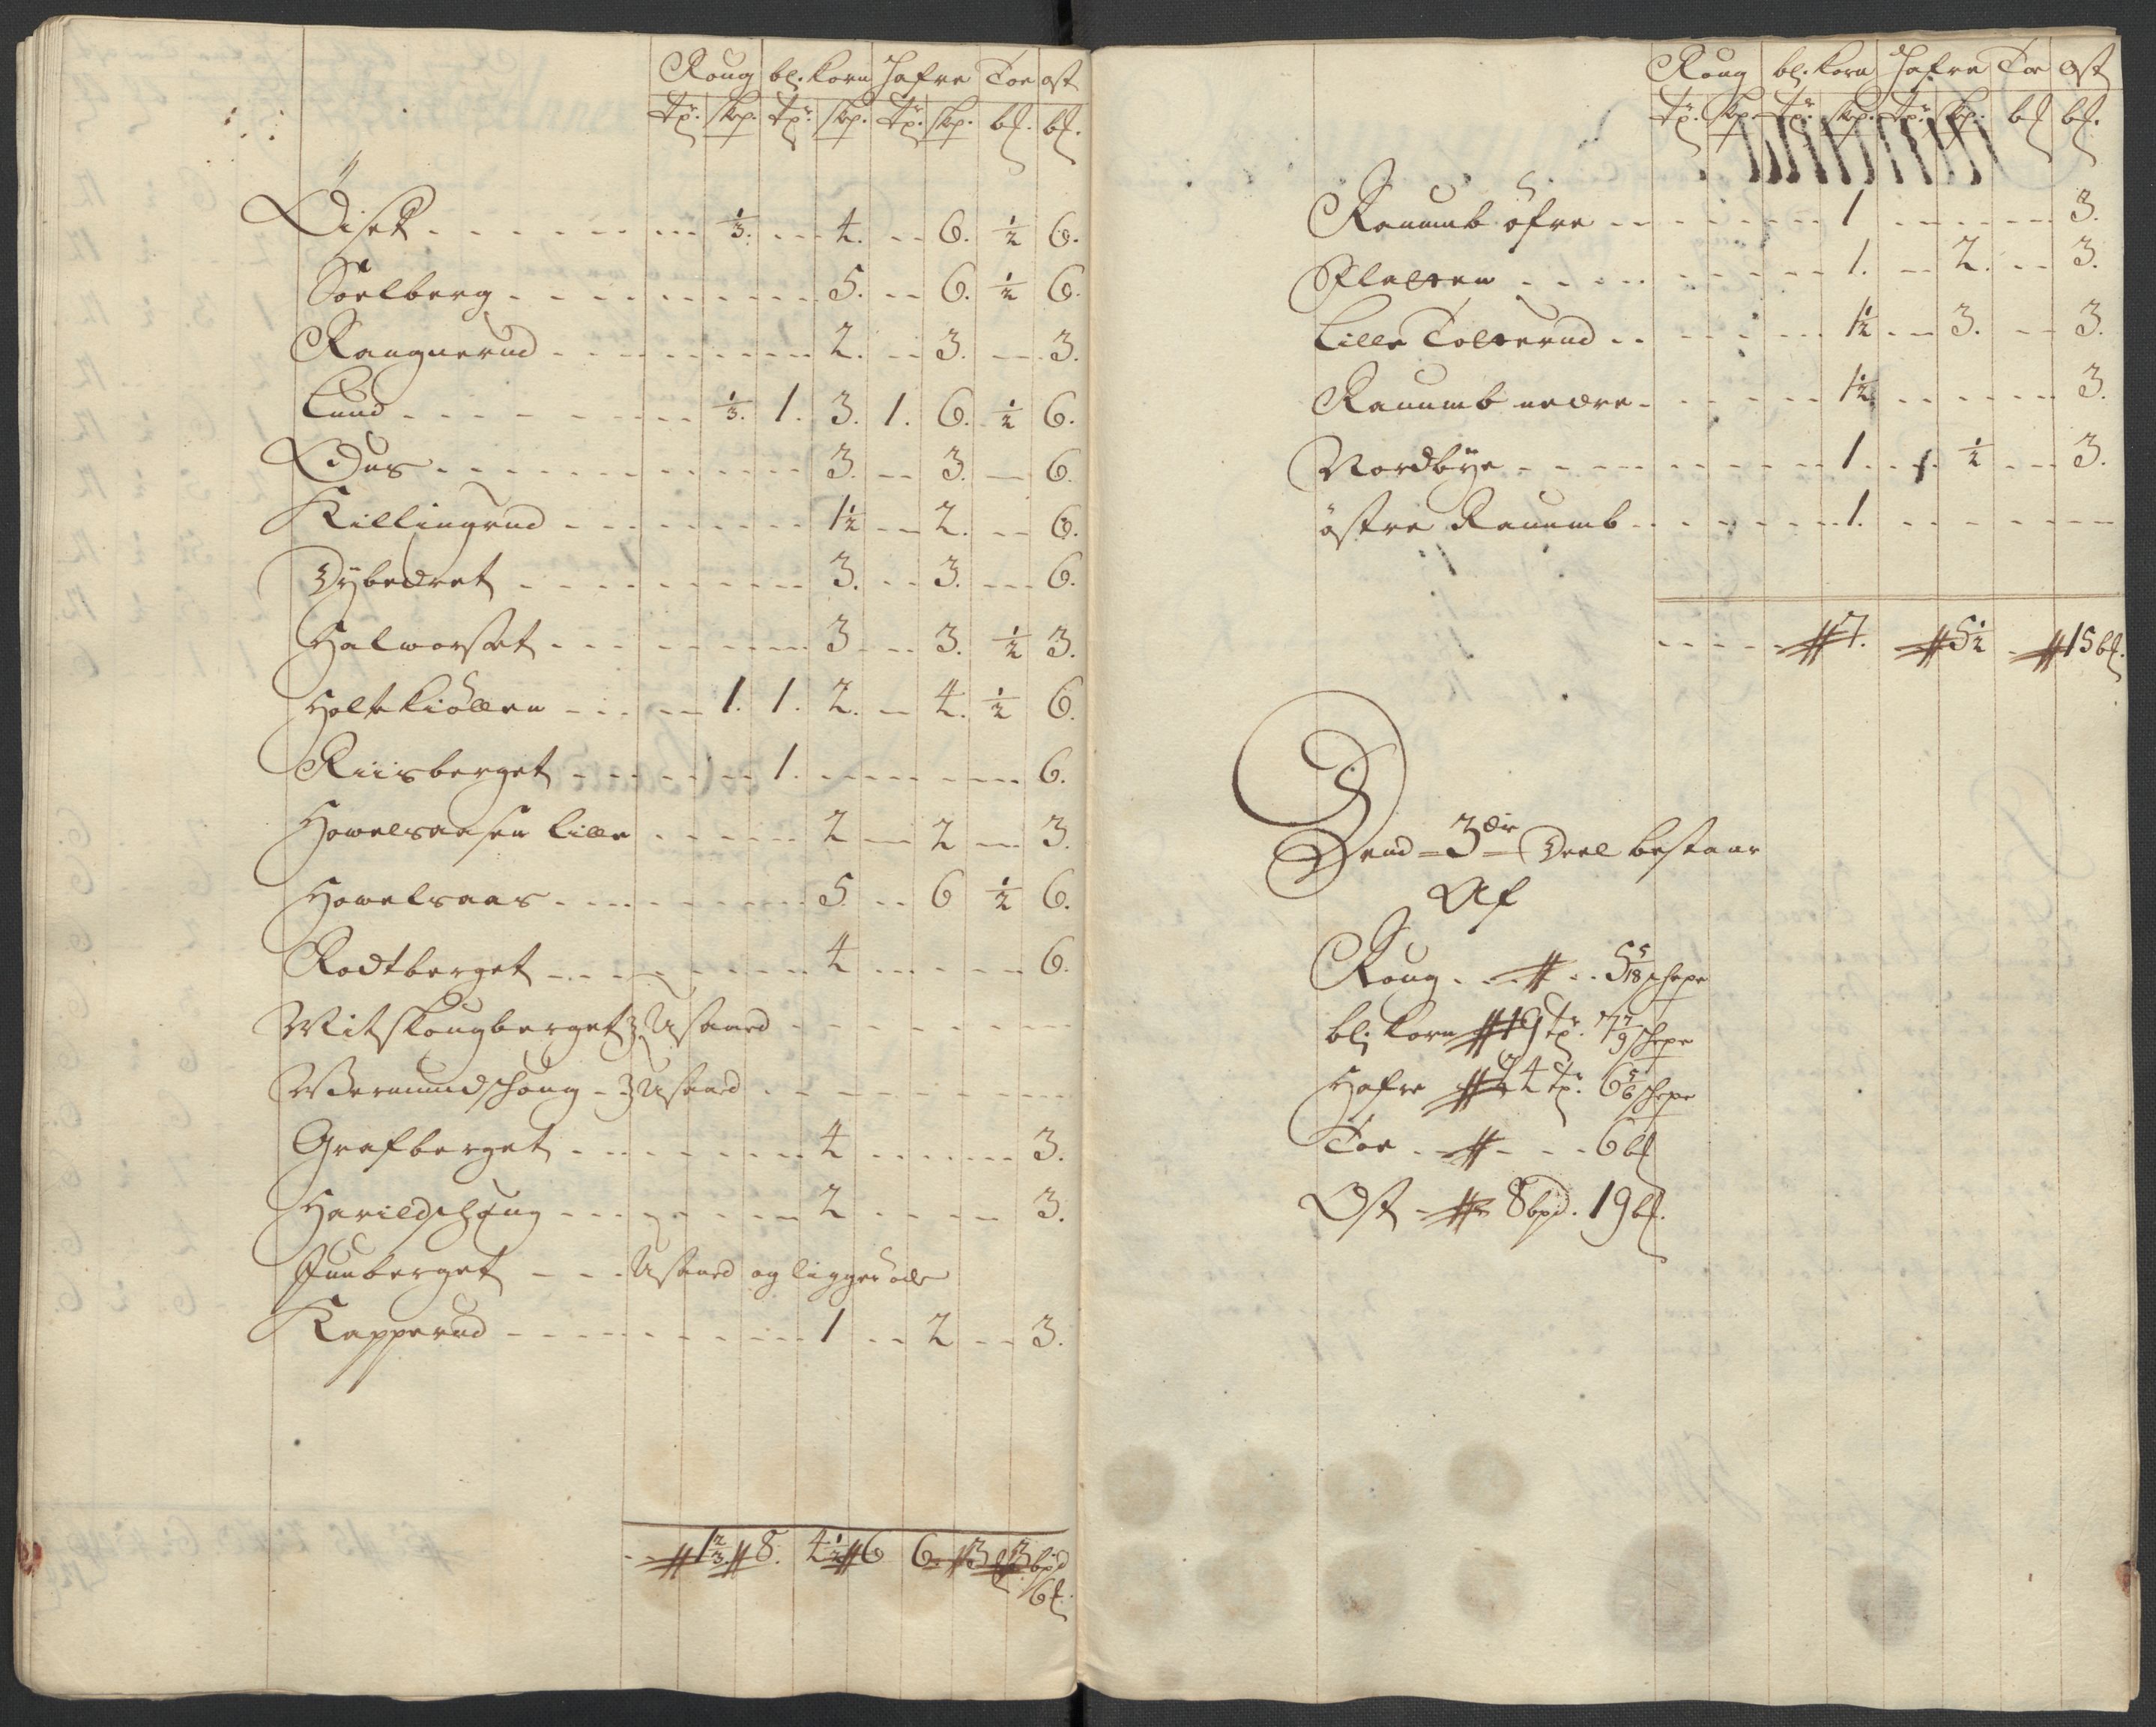 Roug bl. Korn Hafre Toe ost
tr. skp. tr. skp. tr. skp. bl. bl.
Öiset 1/3. 4. 6. 1/2 6.
Soelberg 5. 6. 1/2 6.
Raugnerud 2. 3. 3.
Lund 1/3. 1. 3. 1. 6. 1/2 6.
Duus 3. 3. 6.
Killingrud 1 1/2 2. 6.
Dybedret 3. 3. 6.
Halworset 3 3. 1/2 3.
Holtekiöllen 1. 1. 2. 4. 1/2 6.
Riisberget 1. 6.
Howelsaasen Lille 2 2 3.
Howelsaas 5. 6 1/2 6.
Rodtberget 4 6.
Witskougberget Usaaed
Wermundshoug Usaaed
Grafberget 4 3.
Harildshoug 2 3.
Juuberget Usaaed og ligger öde
Kapperud 1 2 3.
1 2/3 8. 4 1/2 6 6 3 3 bpd
6 bl.
Roug bl. Korn Hafre Toe Ost
tr. skp. tr. skp. tr. skp. bl bl.
Rauumb öfre 1 3.
Flatten 1. 2. 3.
Lille Tolterud 1 1/2 3. 3.
Rauumb nedre 1 1/2 3.
Nordbÿe 1 1/2 3.
östre Rauumb 1.
7. 5 1/2 15 bl.
Dend 3die Deel bestaar
Af
Roug 5 5/18 schepe
bl. Korn 19 tr. 7 7/9 schepe
Hafre 24 tr. 6 5/6 schepe
Toe 6 bl
Ost 8 bpd. 19 bl.